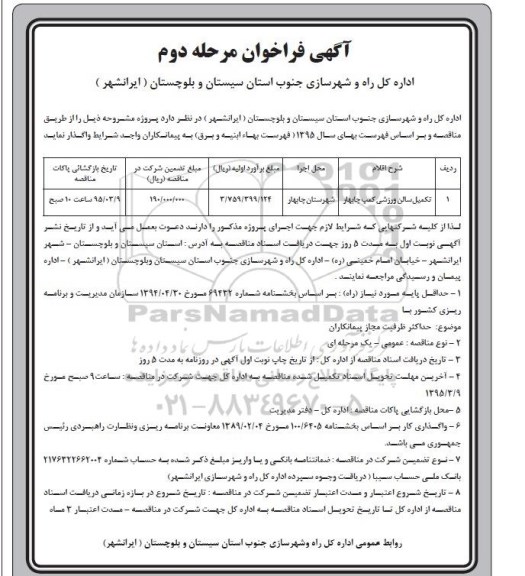 آگهی فراخوان مرحله دوم
اداره کل راه و شهرسازی جنوب استان سیستان و بلوچستان ( ایرانشهر )
اداره کل راه و شهرسازی جنوب استان سیستان و بلوچستان ( ایرانشهر ) در نظر دارد پروژه مشروحه ذیل را از طریق
مناقصه و بر اساس فهرست بهای سال ۱۳۹۵( فهرست بهاء ابنیه و برق) به پیمانکاران واجد شرایط واگذار نماید
ردیف شرح اقلام محل اجرا مبلغ برآورد اولیه (ریال) مبلغ تضمین شرکت در مناقصه (ریال) تاریخ بازگشائی پاکات مناقصه
۱ تکمیل سالن ورزشی کمپ چابهار شهرستان چابهار ۳/۷۵۹/۳۹۹/۱۲۴ ۱۹۰/۰۰۰/۰۰۰ ۹۵/۰۳/۹ ساعت ۱۰ صبح
لذا از کلیه شرکتهایی که شرایط لازم جهت اجرای پروژه مذکور را دارند دعوت بعمل می آید و از تاریخ نشر
آگهی نوبت اول به مدت ۵ روز جهت دریافت اسناد مناقصه به آدرس : استان سیستان و بلوچستان – شهر
ایرانشهر – خیابان امام خمینی (ره) – اداره کل راه و شهرسازی جنوب استان سیستان وبلوچستان ( ایرانشهر ) – اداره
پیمان و رسیدگی مراجعه نمایند .
۱ – حداقل پایه مورد نیاز (راه) : بر اساس بخشنامه شماره ۶۹۴۳۲ مورخ ۱۳۹۴/۰۴/۳۰ سازمان مدیریت و برنامه
ریزی کشور با
موضوع: حداکثر ظرفیت مجاز پیمانکاران
۲ – نوع مناقصه : عمومی – یک مرحله ای
۳ – تاریخ دریافت اسناد مناقصه از اداره کل : از تاریخ چاپ نوبت اول آگهی در روزنامه به مدت ۵ روز
۴ – آخرین مهلت تحویل اسناد تکمیل شده مناقصه به اداره کل جهت شرکت در مناقصه : ساعت ۹ صبح مورخ
۱۳۹۵/۳/۹
۵ –محل بازگشایی پاکات مناقصه : اداره کل – دفتر مدیریت
۶ – واگذاری کار بر اساس بخشنامه ۱۰۰/۶۴۰۵ مورخ ۱۳۸۹/۰۲/۰۴ معاونت برنامه ریزی ونظارت راهبردی رئیس
جمهوری می باشد.
۷ – نوع تضمین شرکت در مناقصه : ضمانتنامه بانکی و یا واریز مبلغ ذکر شده به حساب شماره ۲۱۷۶۳۲۲۶۶۲۰۰۴
بانک ملی حساب سیبا ( دریافت وجوه سپرده اداره کل راه و شهرسازی ایرانشهر)
۸ – تاریخ شروع اعتبار و مدت اعتبار تضمین شرکت در مناقصه : تاریخ شروع در بازه زمانی دریافت اسناد
مناقصه از اداره کل تا تاریخ تحویل اسناد مناقصه به اداره کل جهت شرکت در مناقصه – مدت اعتبار ۳ ماه
روابط عمومی اداره کل راه وشهرسازی جنوب استان سیستان و بلوچستان ( ایرانشهر)
ParsNamadData
۰۲۱-۸۸۳۴۹۶۷۰-۵